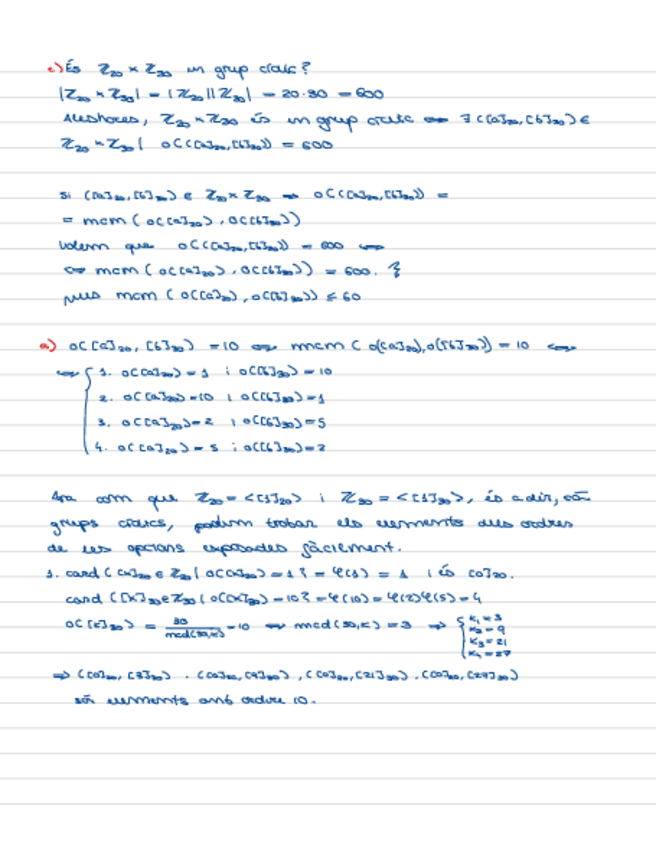 c) És Z₂₀ × Z₃₀ un grup cíclic?
|Z₂₀ × Z₃₀| = |Z₂₀||Z₃₀| = 20·30 = 600
Aleshores, Z₂₀ × Z₃₀ és un grup cíclic ⟺ ∃ ([a]₂₀,[b]₃₀) ∈
Z₂₀ × Z₃₀ | o(([a]₂₀,[b]₃₀)) = 600
Si ([a]₂₀,[b]₃₀) ∈ Z₂₀ × Z₃₀ ⟹ o(([a]₂₀,[b]₃₀)) =
= mcm(o([a]₂₀), o([b]₃₀))
Volem que o(([a]₂₀,[b]₃₀)) = 600 ⟺
⟺ mcm(o([a]₂₀), o([b]₃₀)) = 600.
pues mcm(o([a]₂₀), o([b]₃₀)) ≤ 60
a) o([a]₂₀, [b]₃₀) = 10 ⟺ mcm(o([a]₂₀), o([b]₃₀)) = 10 ⟺
⟺ { 1. o([a]₂₀) = 1 i o([b]₃₀) = 10
2. o([a]₂₀) = 10 i o([b]₃₀) = 1
3. o([a]₂₀) = 2 i o([b]₃₀) = 5
4. o([a]₂₀) = 5 i o([b]₃₀) = 2
Ara com que Z₂₀ = <[1]₂₀> i Z₃₀ = <[1]₃₀>, és a dir, són
grups cíclics, podem trobar els elements dels ordres
de les opcions exposades fàcilment.
1. card{[x]₂₀ ∈ Z₂₀ | o([x]₂₀) = 1} = φ(1) = 1 i és [0]₂₀.
card{[x]₃₀ ∈ Z₃₀ | o([x]₃₀) = 10} = φ(10) = φ(2)φ(5) = 4
o([k]₃₀) = 30/mcd(30,k) = 10 ⟺ mcd(30,k) = 3 ⟹ { k₁ = 3
k₂ = 9
k₃ = 21
k₄ = 27
⟹ ([0]₂₀,[3]₃₀), ([0]₂₀,[9]₃₀), ([0]₂₀,[21]₃₀), ([0]₂₀,[27]₃₀)
són elements amb ordre 10.